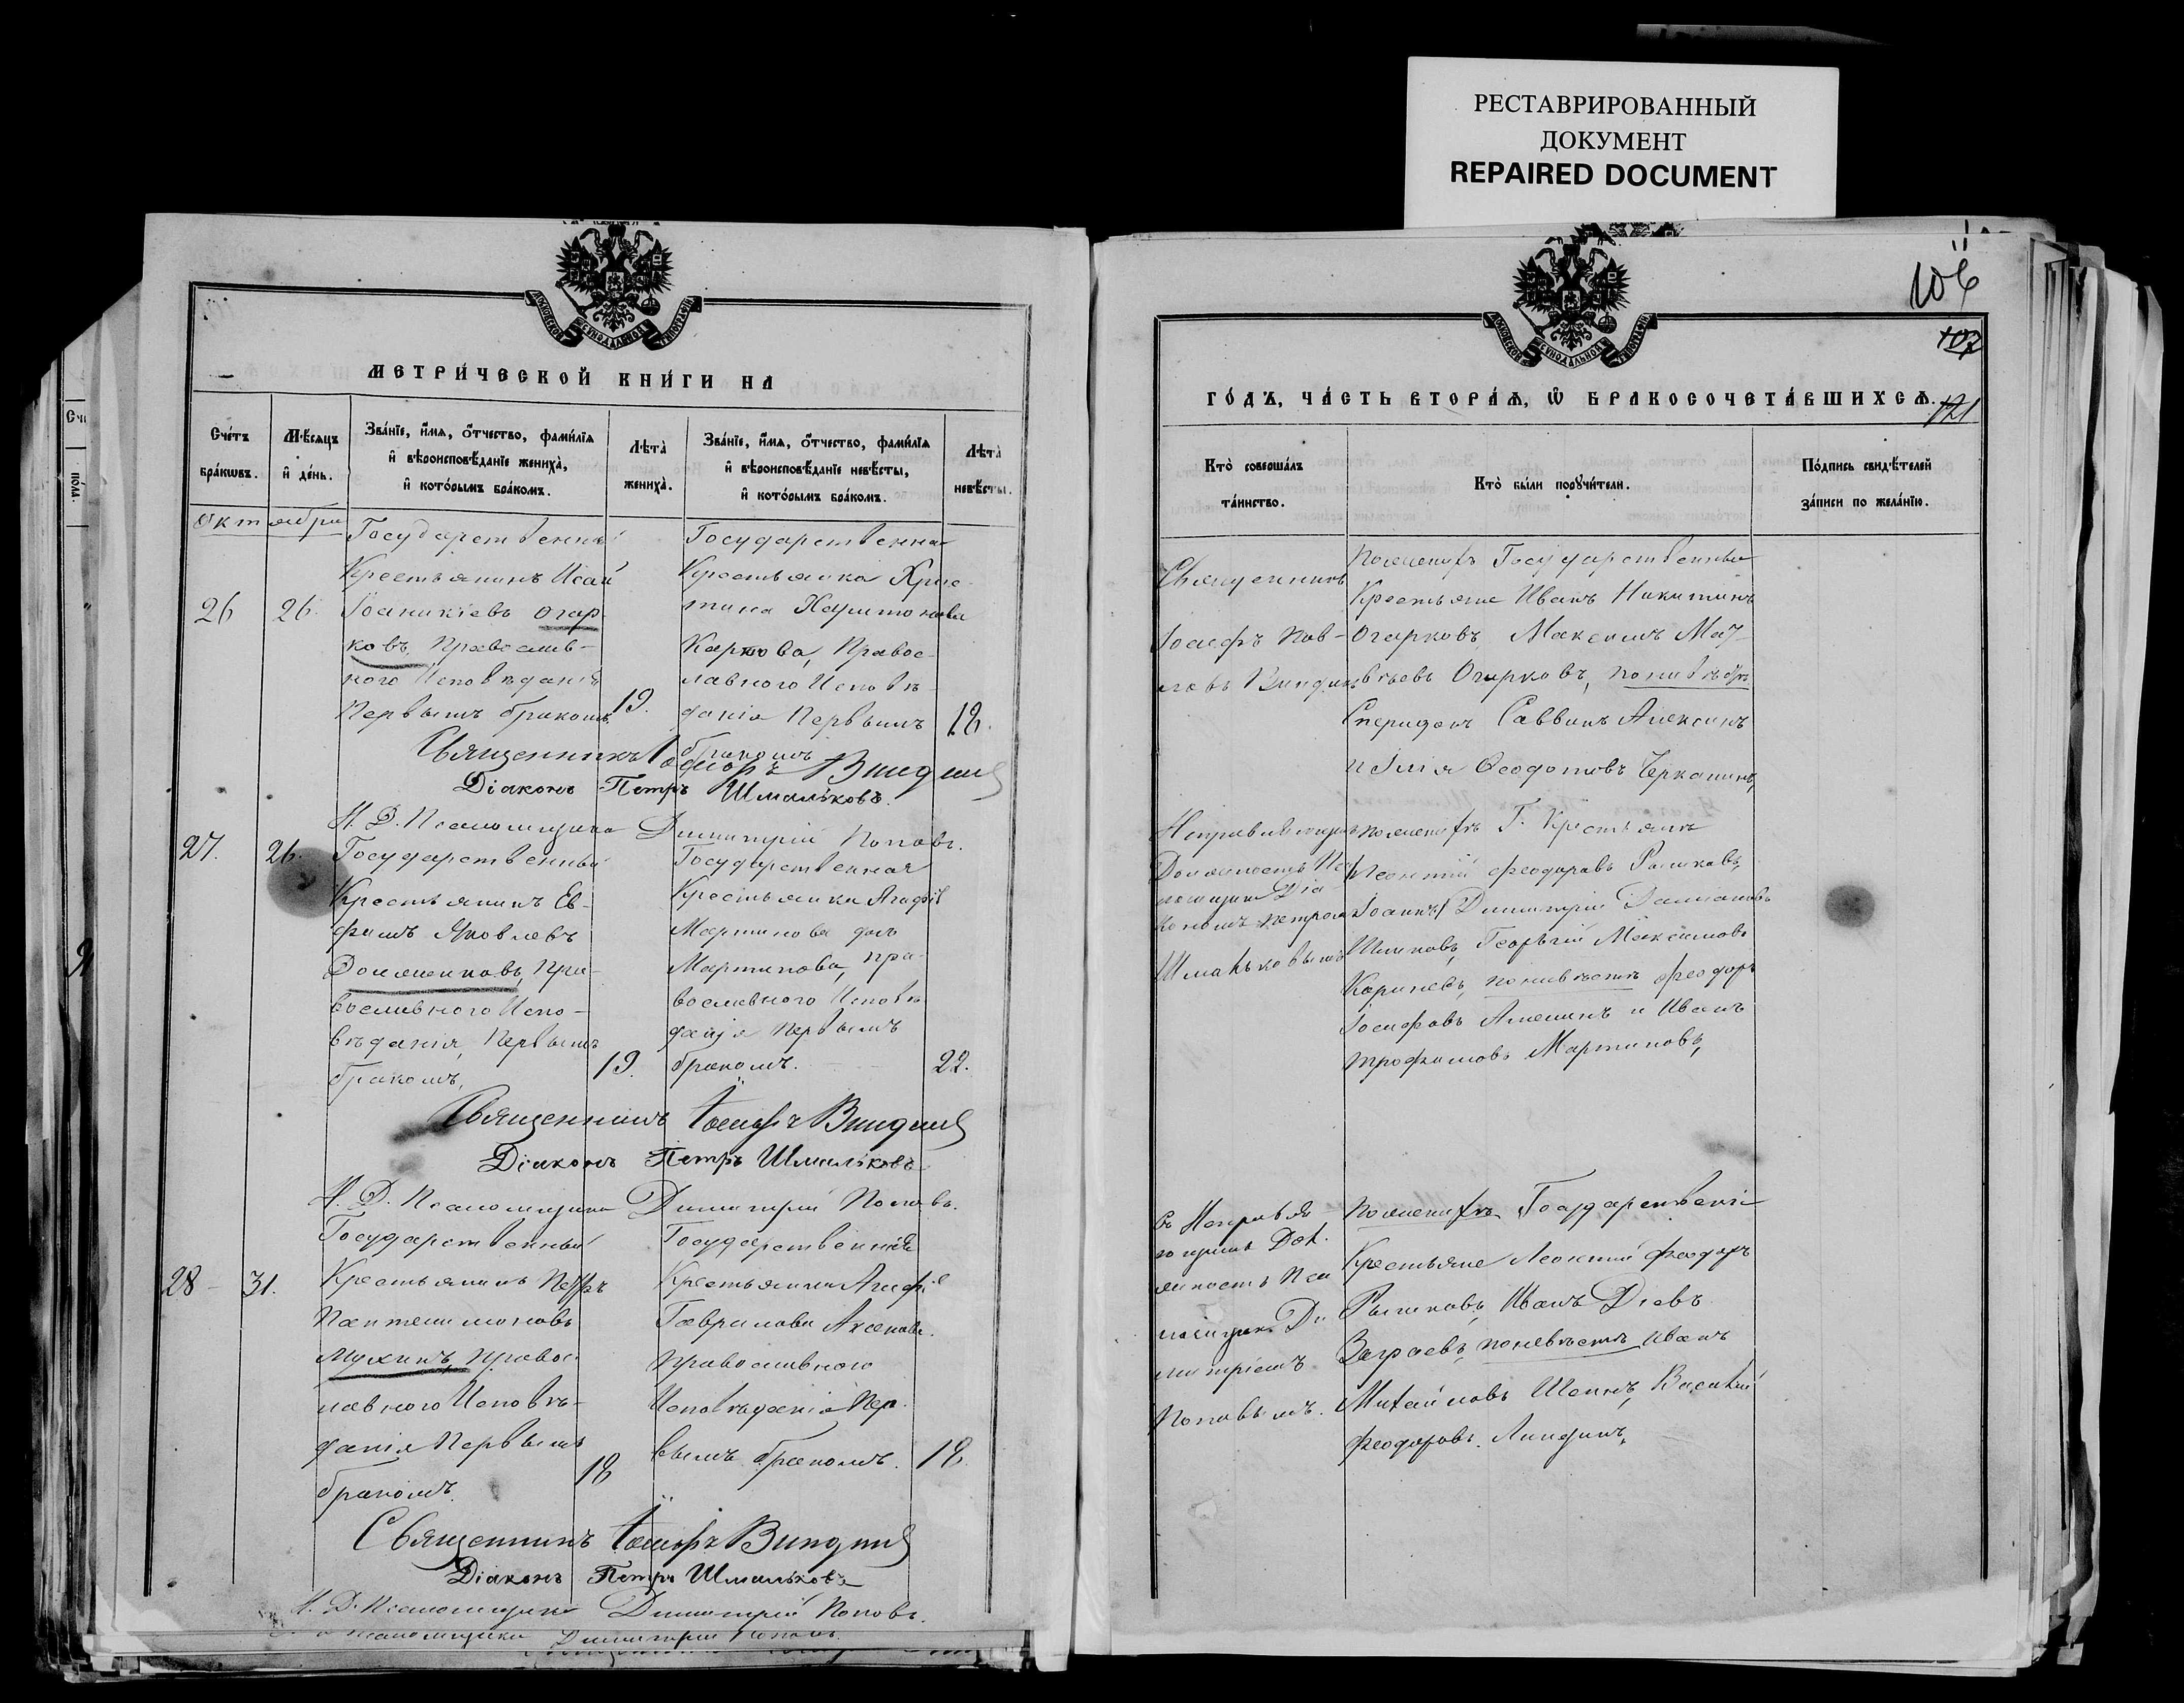 РЕСТАВРИРОВАННЫЙ
ДОКУМЕНТ
REPAIRED DOCUMENT
МЕТРИ́ЧЕСКОЙ КНИ́ГИ НА
Сче́тъ бра́кωвъ.
Мѣ́сяцъ и҆ де́нь.
Зва́нїе, и҆́мѧ, о҆́тчество, фами́лїѧ и҆ вѣроисповѣ́данїе жениха̀, и҆ кото́рымъ бра́комъ.
Лѣта̀ жениха̀.
Зва́нїе, и҆́мѧ, о҆́тчество, фами́лїѧ и҆ вѣроисповѣ́данїе невѣ́сты, и҆ кото́рымъ бра́комъ.
Лѣта̀ невѣ́сты.
Октября
26
26.
Государственный
Крестьянинъ Исай
Іоаникіевъ Огар-
ковъ, Православ-
ного Исповѣданія
Первымъ бракомъ
19.
Государственная
Крестьянка Хрис-
тина Харитонова
Карпова, Правос-
лавного Исповѣ-
данія Первымъ
бракомъ
18.
Священникъ Іосифъ
Діаконъ Петръ Шмальковъ.
И. Д. Псаломщика Димитрій Поповъ.
27.
26.
Государственный
Крестьянинъ Ев-
фимъ Яковлевъ
Пра-
вославного Испо-
вѣданія, Первымъ
бракомъ,
19.
Государственная
Крестьянка Агафіе
Мартинова дочь
Мартинова, пра-
вославного Исповѣ-
данія Первымъ
бракомъ.
22.
Священникъ Іосифъ
Діаконъ Петръ Шмальковъ
И. Д. Псаломщика Димитрій Поповъ.
28
31.
Государственный
Крестьянинъ Петръ
Пантелимоновъ
Мухинъ, Правос-
лавного Исповѣ-
данія Первымъ
бракомъ.
18
Государственная
Крестьянка Агафіе
Гаврилова Аксенова.
Православного
Исповѣданія Пер-
вымъ бракомъ.
18.
Священникъ Іосифъ
Діаконъ Петръ Шмальковъ
И. Д. Псаломщика Димитрій Поповъ.
106
107
121
ГО́ДЪ, ЧА́СТЬ ВТОРА́Ѧ, Ѽ БРАКОСОЧЕТА́ВШИХСѦ.
Кто̀ соверша́лъ та́инство.
Кто̀ бы́ли порꙋчи́тели.
По́дпись свидѣ́телей за́писи по жела́нїю.
Священникъ
Іосифъ Пав-
ловъ
По женихѣ Государственные
Крестьяне Иванъ Никитинъ
Огарковъ, Максимъ Мат-
вѣевъ Огарковъ, по невѣстѣ
Спиридонъ Саввинъ Алексинъ
и Илія Ѳеодотовъ
Діа-
кономъ Петромъ
Шмальковымъ
По женихѣ Г. Крестьяне
Леонтій Феодоровъ
Димитрій
Георгій Максимовъ
по невѣстѣ Феодоръ
Іосифовъ и Иванъ
Трофимовъ Мартиновъ,
Исправля-
ющимъ Дол-
жность Пса-
ломщика Ди-
митріемъ
Поповымъ.
По женихѣ Государственніе
Крестьяне Леонтій Феодор
Иванъ
по невѣстѣ Иванъ
Михайловъ Василій
Феодоровъ